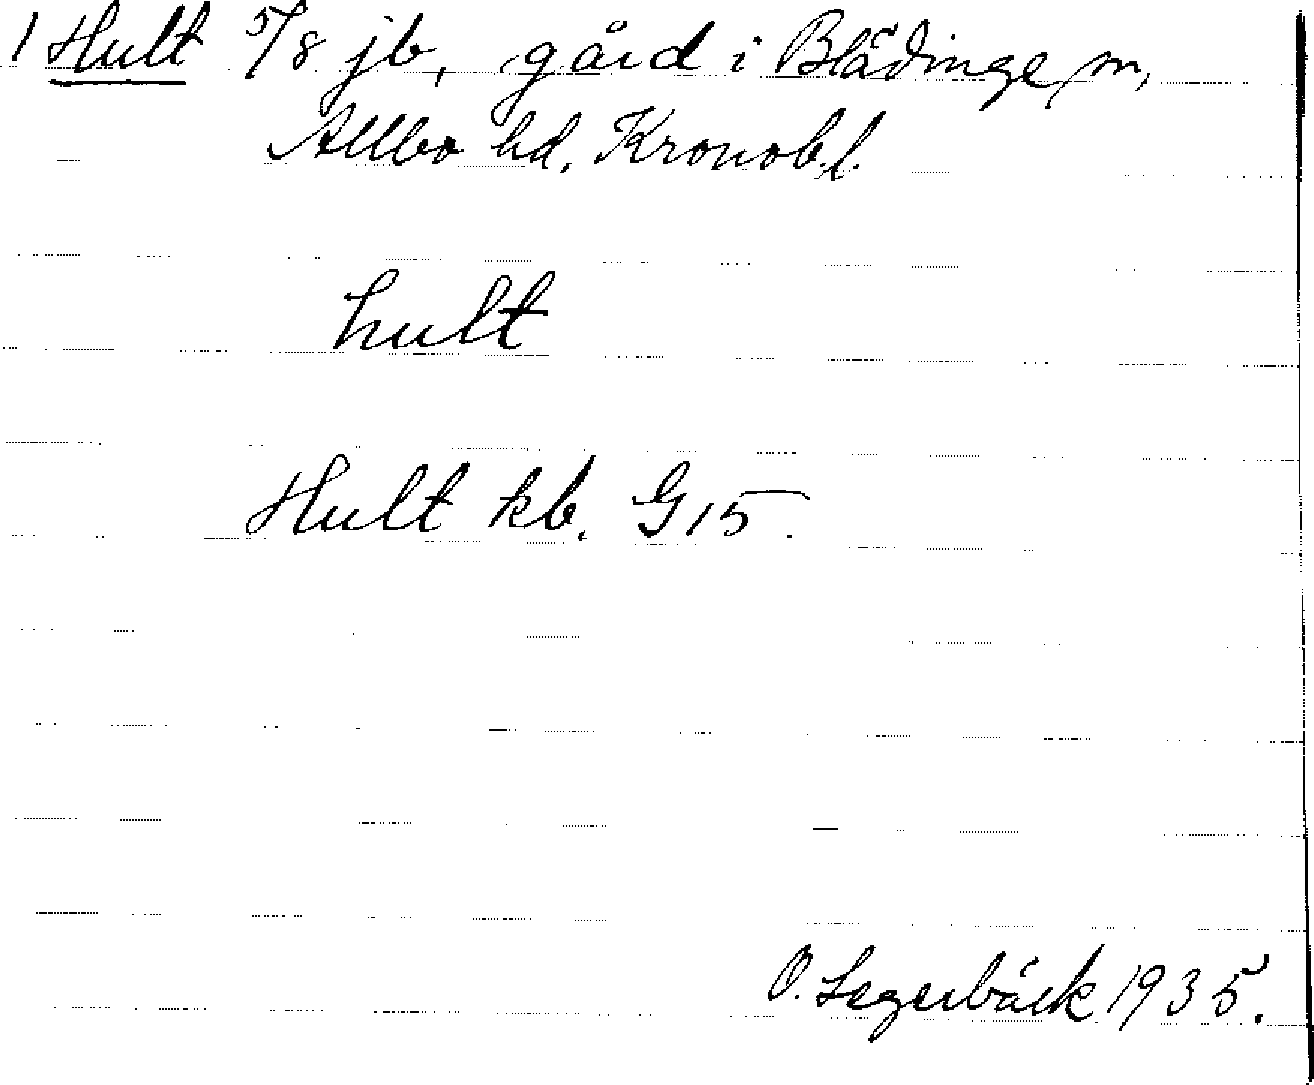 1 Hult 5/8 jb, gård i Blädinge sn,
Allbo hd. Kronob.l.
hult
Hult kb. G 15.
O. Segerbäck 1935.